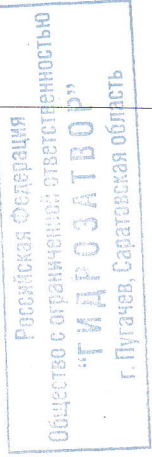 Российская Федерация
Общество с ограниченной ответственностью
"ГИДРОЗАТВОР"
г. Пугачев, Саратовская область